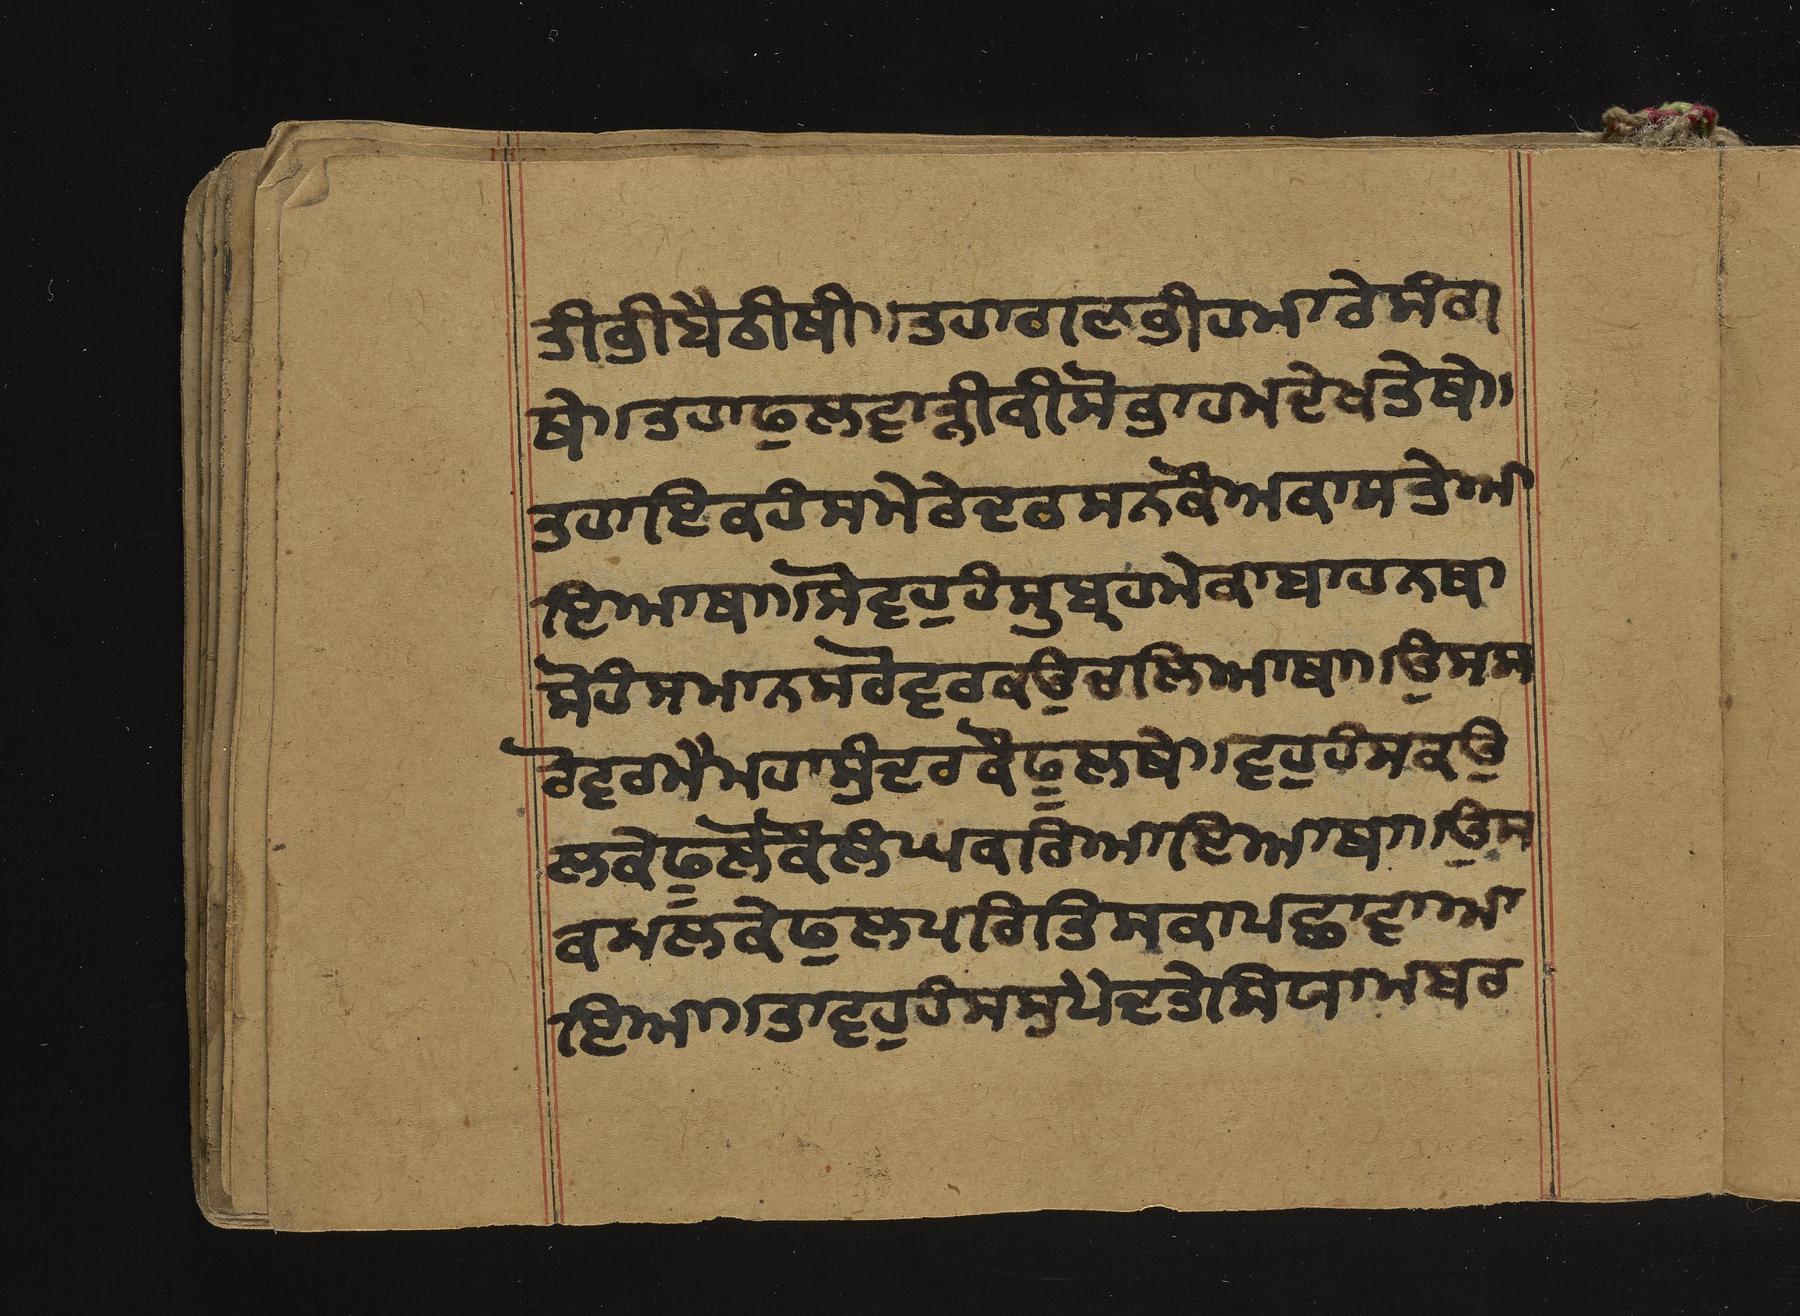 ਤੀਭੀਬੈਠੀਥੀ॥ਤਹਾਗਣਭੀਹਮਾਰੇਸੰਗ
ਥੇ॥ਤਹਾਫੁਲਵਾੜੀਕੀਸੋਭਾਹਮਦੇਖਤੇਥੇ॥
ਤਹਾਇਕਹੰਸਮੇਰੇਦਰਸਨਕੌਅਕਾਸਤੇਆ
ਇਆਥਾ॥ਸੋਵਹੁਹੰਸੁਬ੍ਰਹਮੇਕਾਬਾਹਨਥਾ
ਸੋਹੰਸਮਾਨਸਰੋਵਰਕਉਚਲਿਆਥਾ॥ਉਸਸ
ਰੋਵਰਮੈਮਹਾਸੁੰਦਰਕੌਫੂਲਥੇ॥ਵਹੁਹੰਸਕਉ
ਲਕੇਫੂਲੋਕੌਲੰਘਕਰਿਆਇਆਥਾ॥ਉਸ
ਕਮਲਕੇਫੁਲਪਰਿਤਿਸਕਾਪਛਾਵਾਆ
ਇਆ॥ਤਾਵਹੁਹੰਸਸੁਪੇਦਤੇਸਿਯਾਮਬਰ